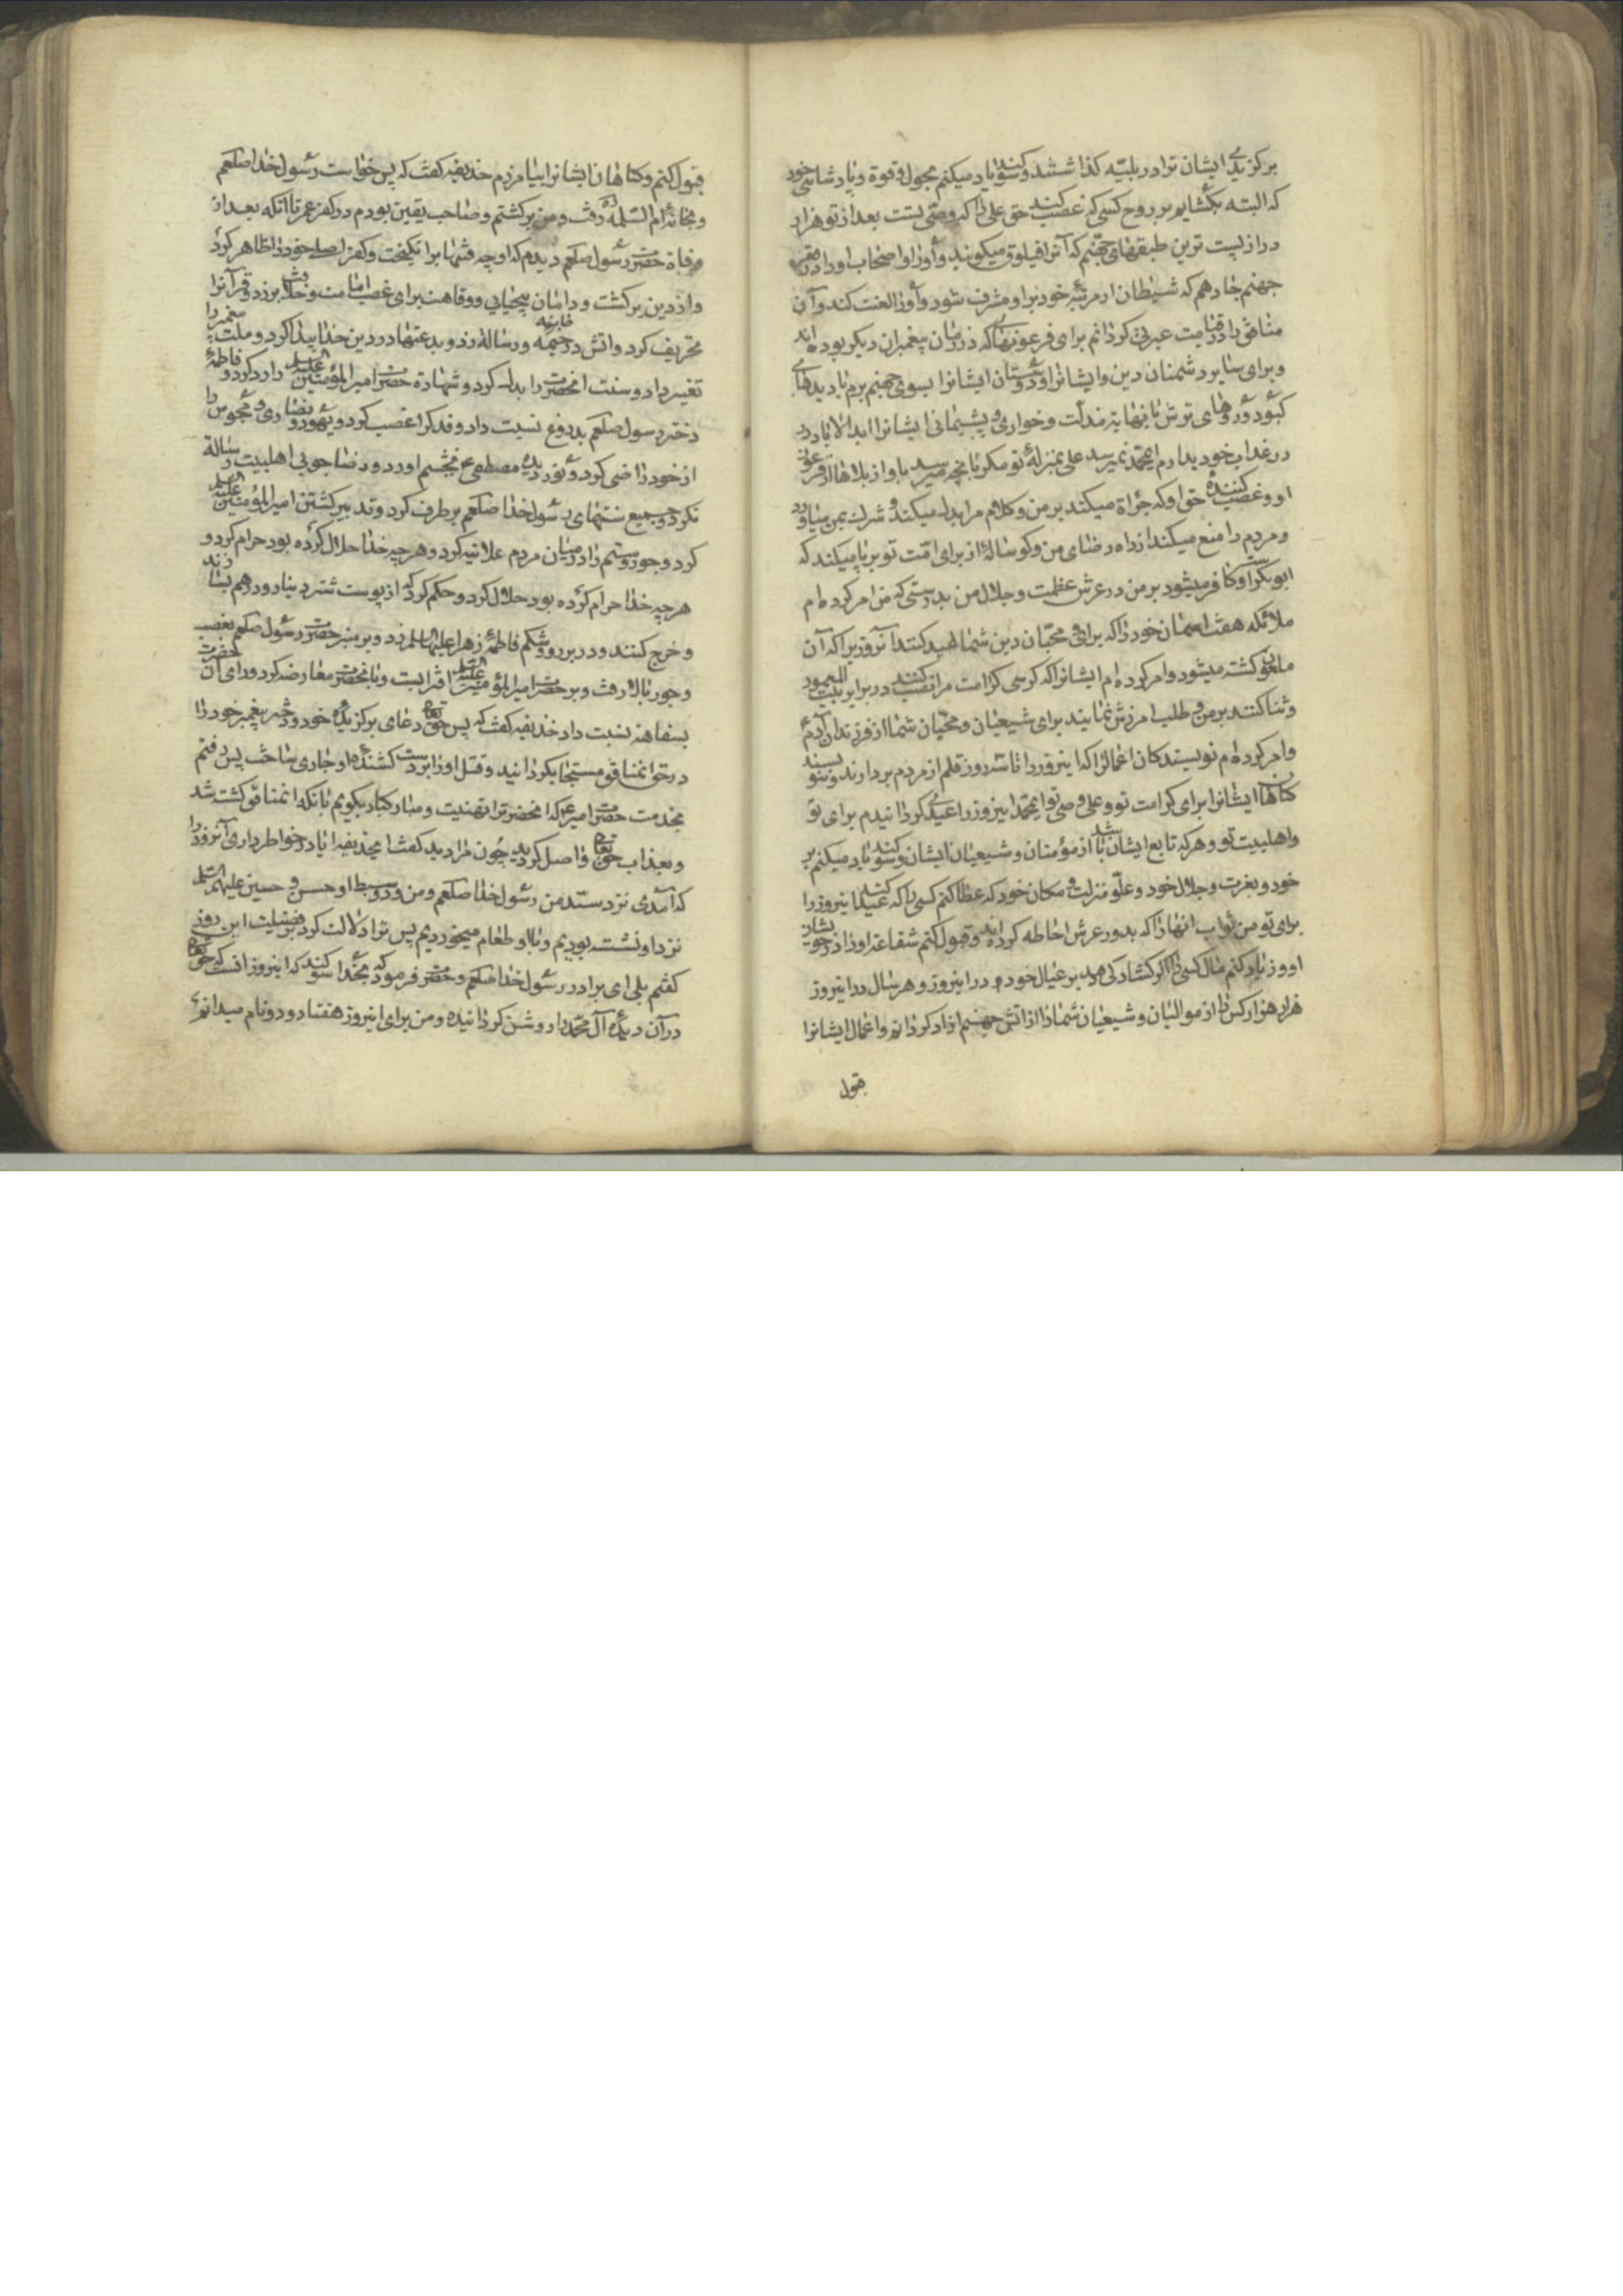 برکزیدۀ ایشان ترا در بلیّه کذاشتند و سوکند یاد میکنم بحول و قوة و پادشاهی خود
که البته بکشایم بر روح کسی که غصب کند حق علی را که وصّی تست بعد از تو هزار
در از پست ترین طبقهای جهنّم که آنرا فیلوق میکویند و او را و اصحاب او را در قعر
جهنم جا دهم که شیطان از مرتبه خود بر او مشرف شود و او را لعنت کند و آن
منافق را در قیامت عبرتی کردانم برای فرعونهائی که در زمان پیغمبران دیکر بوده اند
و برای سایر دشمنان دین و ایشانرا و دوستان ایشانرا بسوی جهنم برم با دیدهای
کبود و روهای ترش با نهایة مذلّت و خواری و پشیمانی ایشانرا ابد الاباد در
در عذاب خود بدارم ایمحمّد نمیرسد علی بمنزلۀ تو مکر بآنچه میرسد باو از بلاها از فرعون
او و غصب کنندۀ حق او که جرأة میکند بر من و کلام مرا بدل میکند و شرک بمن میاورد
و مردم را منع میکند از راه رضای من و کوسالۀ از برای امّت تو برپا میکند که
ابوبکر است و کافر میشود بر من در عرش عظمت و جلال من بدرستی که من امر کرده ام
ملائکه هفت اسمان خود را که برای محبّان دین شما عید کنند آنروزیرا که آن
ملعون کشته میشود و امر کرده ام ایشانرا که کرسی کرامت مرا نصب کنند در برابر بیت المعمور
و ثنا کنند بر من و طلب امرزش نمایند برای شیعیان و محبّان شما از فرزندان آدم
و امر کرده ام نویسندکان اعمال را که اینروز را تا سه روز قلم از مردم بردارند و ننویسند
کناهان ایشانرا برای کرامت تو و علی وصی تو ایمحمّد اینروز را عیدی کردانیدم برای تو
و اهلبیت تو و هر که تابع ایشان باشد از مؤمنان و شیعیان ایشان و سوکند یاد میکنم بر
خود و بعزت و جلال خود و علّو منزلت و مکان خود که عطا کنم کسی را که عید کند اینروز را
برای تو من ثواب انها را که بدور عرش احاطه کرده اند و قبول کنم شفاعة او را در خویشان
او و زیاد کنم مال کسی را اکر کشادکی دهد بر عیال خود در اینروز و هر سال در اینروز
هزار هزار کس را از موالیان و شیعیان شما را از اتش جهنم ازاد کردانم و اعمال ایشانرا
قبول
قبول کنم و کناهان ایشانرا بیامرزم حذیفه کفت که پس خواست رسول خدا صلعم
و بخانۀ ام السّلمه رفت و من برکشتم و صاحب یقین بودم در کفر عمر تا آنکه بعد از
وفاة حضرت رسول صلعم دیدم که او چه فتنها بر انکیخت و کفر اصلی خود را ظاهر کرد
و از دین برکشت و دامان بیحیایی و وقاهت برای غصب امامت و خلافت بر زد و قرآنرا
تحریف کرد و اتش در خانه و رسالة زد و بدعتها در دین خدا پیدا کرد و ملت پیغمبر را
تغییر داد و سنت انحضرت را بدل کرد و شهادة حضرت امیرالمؤمنین علیه السلم را رد کرد و فاطمۀ
دختر رسول صلعم بدروغ نسبت داد و فدک را غصب کرد و یهود و نصاری و مجوس را
از خود راضی کرد و نور دیدۀ مصطفی ع بخشم اورد و رضا جویی اهلبیت رسالة
نکرد و جمیع سنتهای رسول خدا صلعم برطرف کرد و تدبیر کشتن امیرالمؤمنین علیه السلم
کرد و جور و ستم را در میان مردم علانیه کرد و هر چه خدا حلال کرده بود حرام کرد و
هر چه خدا حرام کرده بود حلال کرد و حکم کرد که از پوست شتر دینار و درهم بسازند
و خرج کنند و در بر رو و شکم فاطمۀ زهرا علیها السلم زد و بر منبر حضرت رسول صلعم بغصب
و جور بالا رفت و بر حضرت امیرالمؤمنین علیه السلم افترا بست و با انحضرت معارضه کرد و رای آن حضرت
بسفاهة نسبت داد حذیفه کفت که پس حق تعالی دعای برکزیدۀ خود و دختر پیغمبر خود را
در حق انمنافق مستجاب کردانید و قتل او را بر دست کشندۀ او جاری ساخت پس رفتم
بخدمت حضرت امیر ع که انحضرترا تهنیت و مبارکباد بکویم بانکه انمنافق کشته شد
و بعذاب حق تعالی واصل کردید چون مرا دید کفت ایحذیفه ایا در خواطر داری آنروز را
که آمدی نزد سیّد من رسول خدا صلعم و من و دو سبط او حسن و حسین علیهم السلم
نزد او نشسته بودیم و با او طعام میخوردیم پس ترا دلالت کرد بر فضیلت این روز
کفتم بلی ای برادر رسول خدا صلعم و حضرت فرمود که بخدا سوکند که اینروز انست که حق تعالی
در آن دیدۀ آل محمّد را روشن کردانیده و من برای اینروز هفتاد و دو نام میدانم